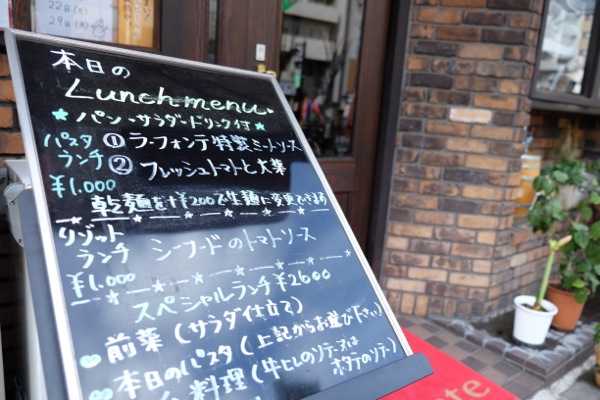 22日(月)
29日(月)
本日の
Lunch menu.
★ パン・サラダ・ドリンク付 ★
パスタランチ ¥1,000
① ラ・フォンテ特製ミートソース
② フレッシュトマトと大葉
乾麺を+¥200で生麺に変更できます
リゾットランチ ¥1,000
シーフードのトマトソース
スペシャルランチ ¥2600
前菜(サラダ仕立て)
本日のパスタ(上記からお選び下さい)
料理(牛ヒレのソテー又はホタテのソテー)